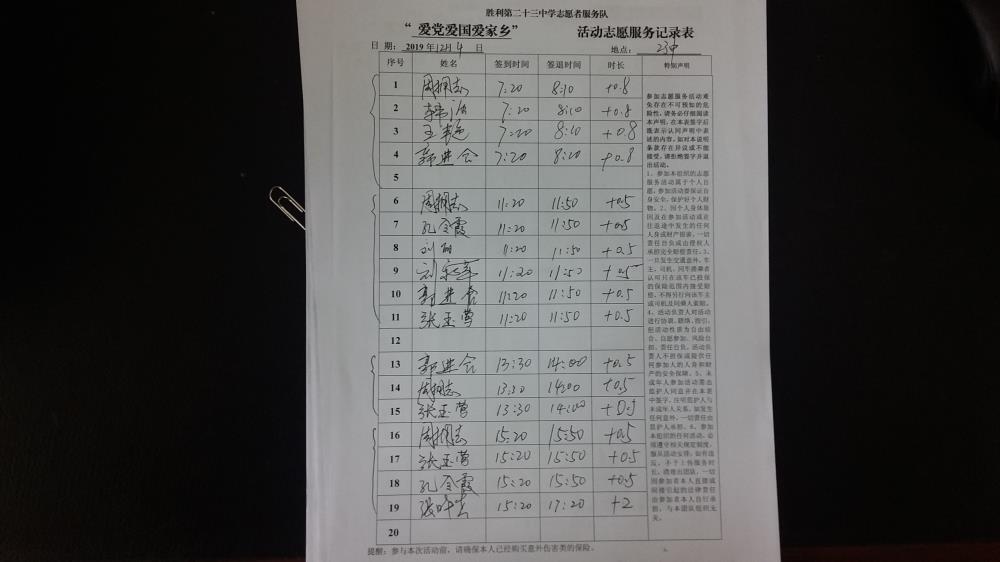 胜利第二十三中学志愿者服务队
“爱党爱国爱家乡” 活动志愿服务记录表
日 期：2019年12月4日 地点：23中
序号 姓名 签到时间 签退时间 时长 特别声明
1 周拥志 7:20 8:10 +0.8
2 韩冰 7:20 8:10 +0.8
3 王艳 7:20 8:10 +0.8
4 郭进会 7:20 8:10 +0.8
5
6 周拥志 11:20 11:50 +0.5
7 孔令霞 11:20 11:50 +0.5
8 刘丽 11:20 11:50 +0.5
9 刘 11:20 11:50 +0.5
10 郭进会 11:20 11:50 +0.5
11 张玉莺 11:20 11:50 +0.5
12
13 郭进会 13:30 14:00 +0.5
14 周拥志 13:30 14:00 +0.5
15 张玉莺 13:30 14:00 +0.5
16 周拥志 15:20 15:50 +0.5
17 张玉莺 15:20 15:50 +0.5
18 孔令霞 15:20 15:50 +0.5
19 张 15:20 17:20 +2
20
参加志愿服务活动难
免存在不可预知的危
险性，请务必仔细阅读
本声明，在本表签字后
既表示认同声明中表
述的内容。如对本说明
条款存在异议或不能
接受，请拒绝签字并退
出活动。
1、参加本组织的志愿
服务活动属于个人自
愿，参加活动要保证自
身安全，保护好个人财
物。2、因个人身体原
因及在参加活动或在
往返途中发生的任何
人身或财产损害，一切
责任自负或由侵权人
承担完全赔偿责任。3、
一旦发生交通意外，车
主、司机、同车搭乘者
认可只在该车已投保
的保险范围内接受赔
偿，不得另行向该车主
或司机及同乘人索赔。
4、活动负责人对活动
进行协调、联络、指引，
但活动性质为自由结
合、自愿参加、风险自
担、责任自负，活动负
责人不担保或提供任
何参加人的人身和财
产的安全保障。5、未
成年人参加活动需出
监护人同意并在本表
中签字，注明监护人与
未成年人关系，如发生
任何意外，一切责任由
监护人承担。6、参加
本组织的任何活动，必
须遵守相关规定制度，
服从活动安排，如有违
反，不予上传服务时
长，清理出团队，一切
因参加者本人直接或
间接引起的法律责任
由参加者本人自行承
担，与本团队组织无
关。
提醒：参与本次活动前，请确保本人已经购买意外伤害类的保险。